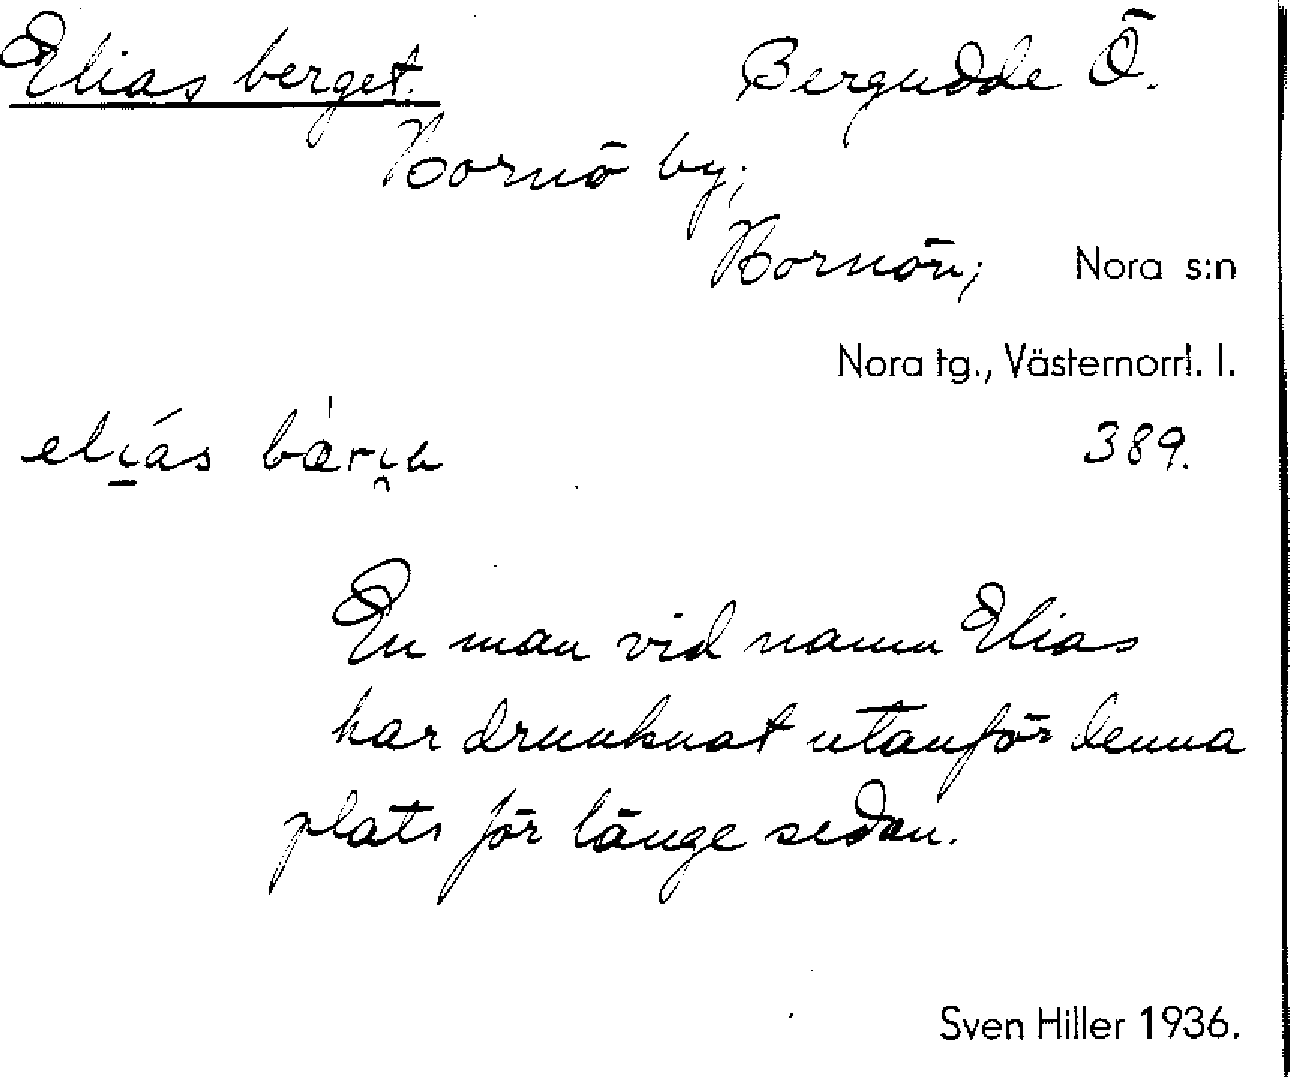 Elias berget. Bergudde Ö.
Hornö by;
Hornön; Nora s:n
Nora tg., Västernorrl. l.
elías 389.
En man vid namn Elias
har drunknat utanför denna
plats för länge sedan.
Sven Hiller 1936.